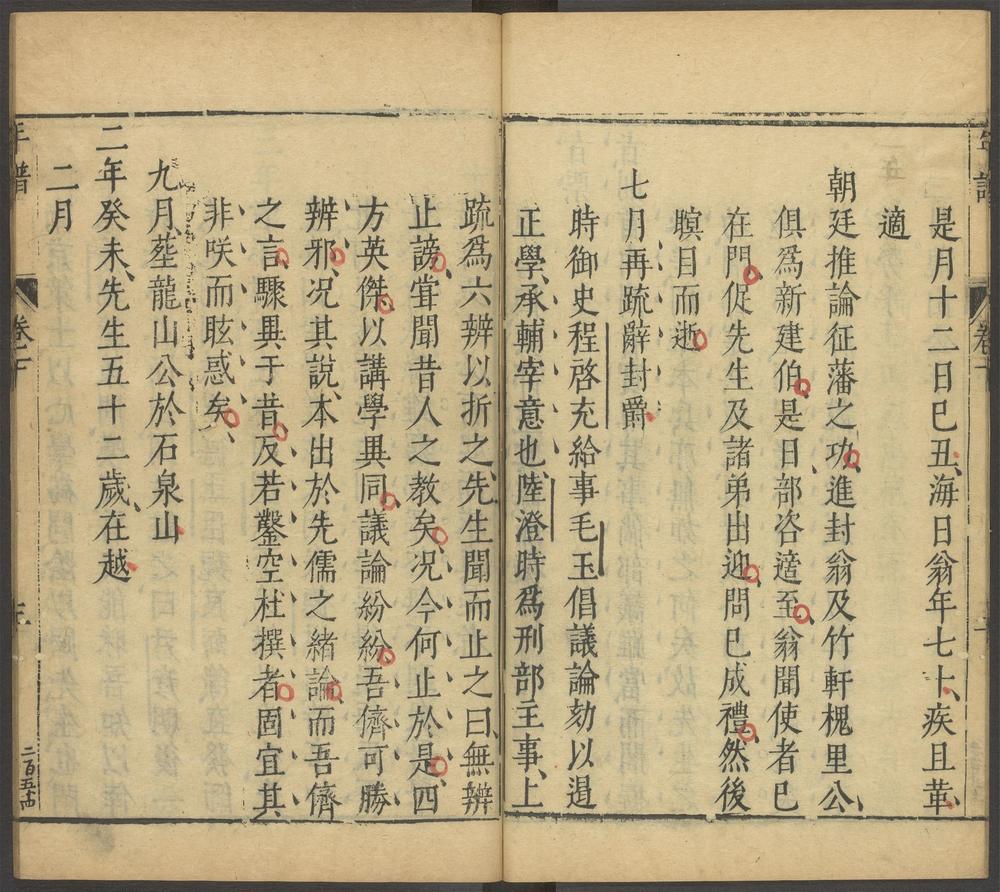 是月十二日巳丑海日翁年七十疾且革
適
朝廷推論征藩之功進封翁及竹軒槐里公
俱爲新建伯是日部咨適至翁聞使者巳
在門促先生及諸弟出迎問巳成禮然後
瞑目而逝
七月再疏辭封爵
時御史程啓充給事毛玉倡議論劾以遏
正學承輔宰意也陸澄時爲刑部主事上
疏爲六辨以折之先生聞而止之曰無辨
止謗甞聞昔人之教矣况今何止於是四
方英傑以講學異同議論紛紛吾儕可勝
辨邪况其說本出於先儒之緒論而吾儕
之言驟異于昔反若鑿空杜撰者固宜其
非咲而眩惑矣
九月塟龍山公於石泉山
二年癸未先生五十二歲在越
二月
年譜
卷七
二百五十四